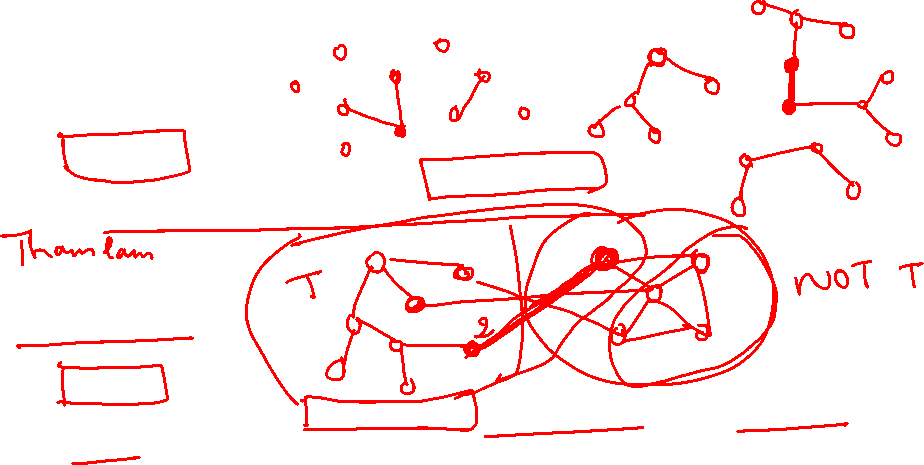 Tham lam
T
2
NOT T